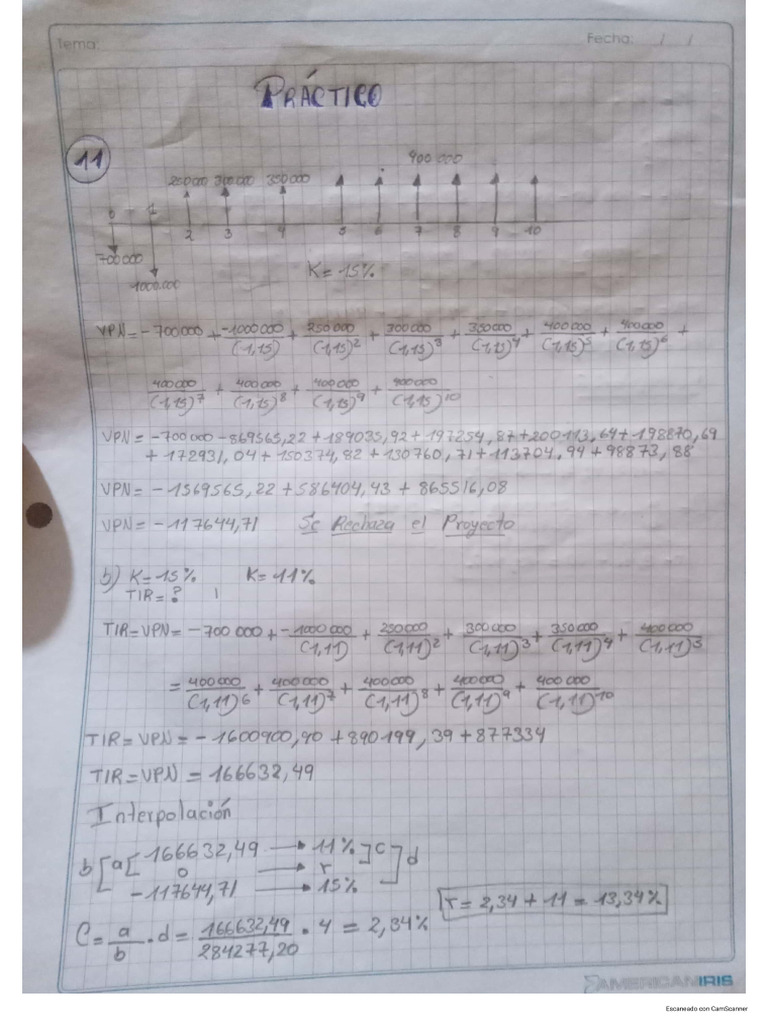 Tema:
Fecha: / /
PRÁCTICO
11
250000 300000 350000 400 000
0 1
2 3 4 5 6 7 8 9 10
700 000
1000.000
K = 15%
VPN = -700000 + -1000 000/(1,15) + 250000/(1,15)² + 300000/(1,15)³ + 350000/(1,15)⁴ + 400000/(1,15)⁵ + 400000/(1,15)⁶ +
400000/(1,15)⁷ + 400000/(1,15)⁸ + 400000/(1,15)⁹ + 400000/(1,15)¹⁰
VPN = -700 000 - 869565,22 + 189035,92 + 197254,87 + 200113,64 + 198870,69
+ 172931,04 + 150374,82 + 130760,71 + 113704,94 + 98873,88
VPN = -1569565,22 + 586404,43 + 865516,08
VPN = -117644,71 Se Rechaza el Proyecto
b) K = 15% K = 11%
TIR = ?
TIR = VPN = -700 000 + -1000 000/(1,11) + 250000/(1,11)² + 300000/(1,11)³ + 350000/(1,11)⁴ + 400000/(1,11)⁵
= 400000/(1,11)⁶ + 400000/(1,11)⁷ + 400000/(1,11)⁸ + 400000/(1,11)⁹ + 400000/(1,11)¹⁰
TIR = VPN = -1600900,90 + 890199,39 + 877334
TIR = VPN = 166632,49
Interpolación
b [ a [ 166632,49 → 11% ] c ] d
0 → r
-117644,71 → 15%
C = a/b . d = 166632,49/284277,20 . 4 = 2,34%
r = 2,34 + 11 = 13,34%
AMERICAN IRIS
Escaneado con CamScanner